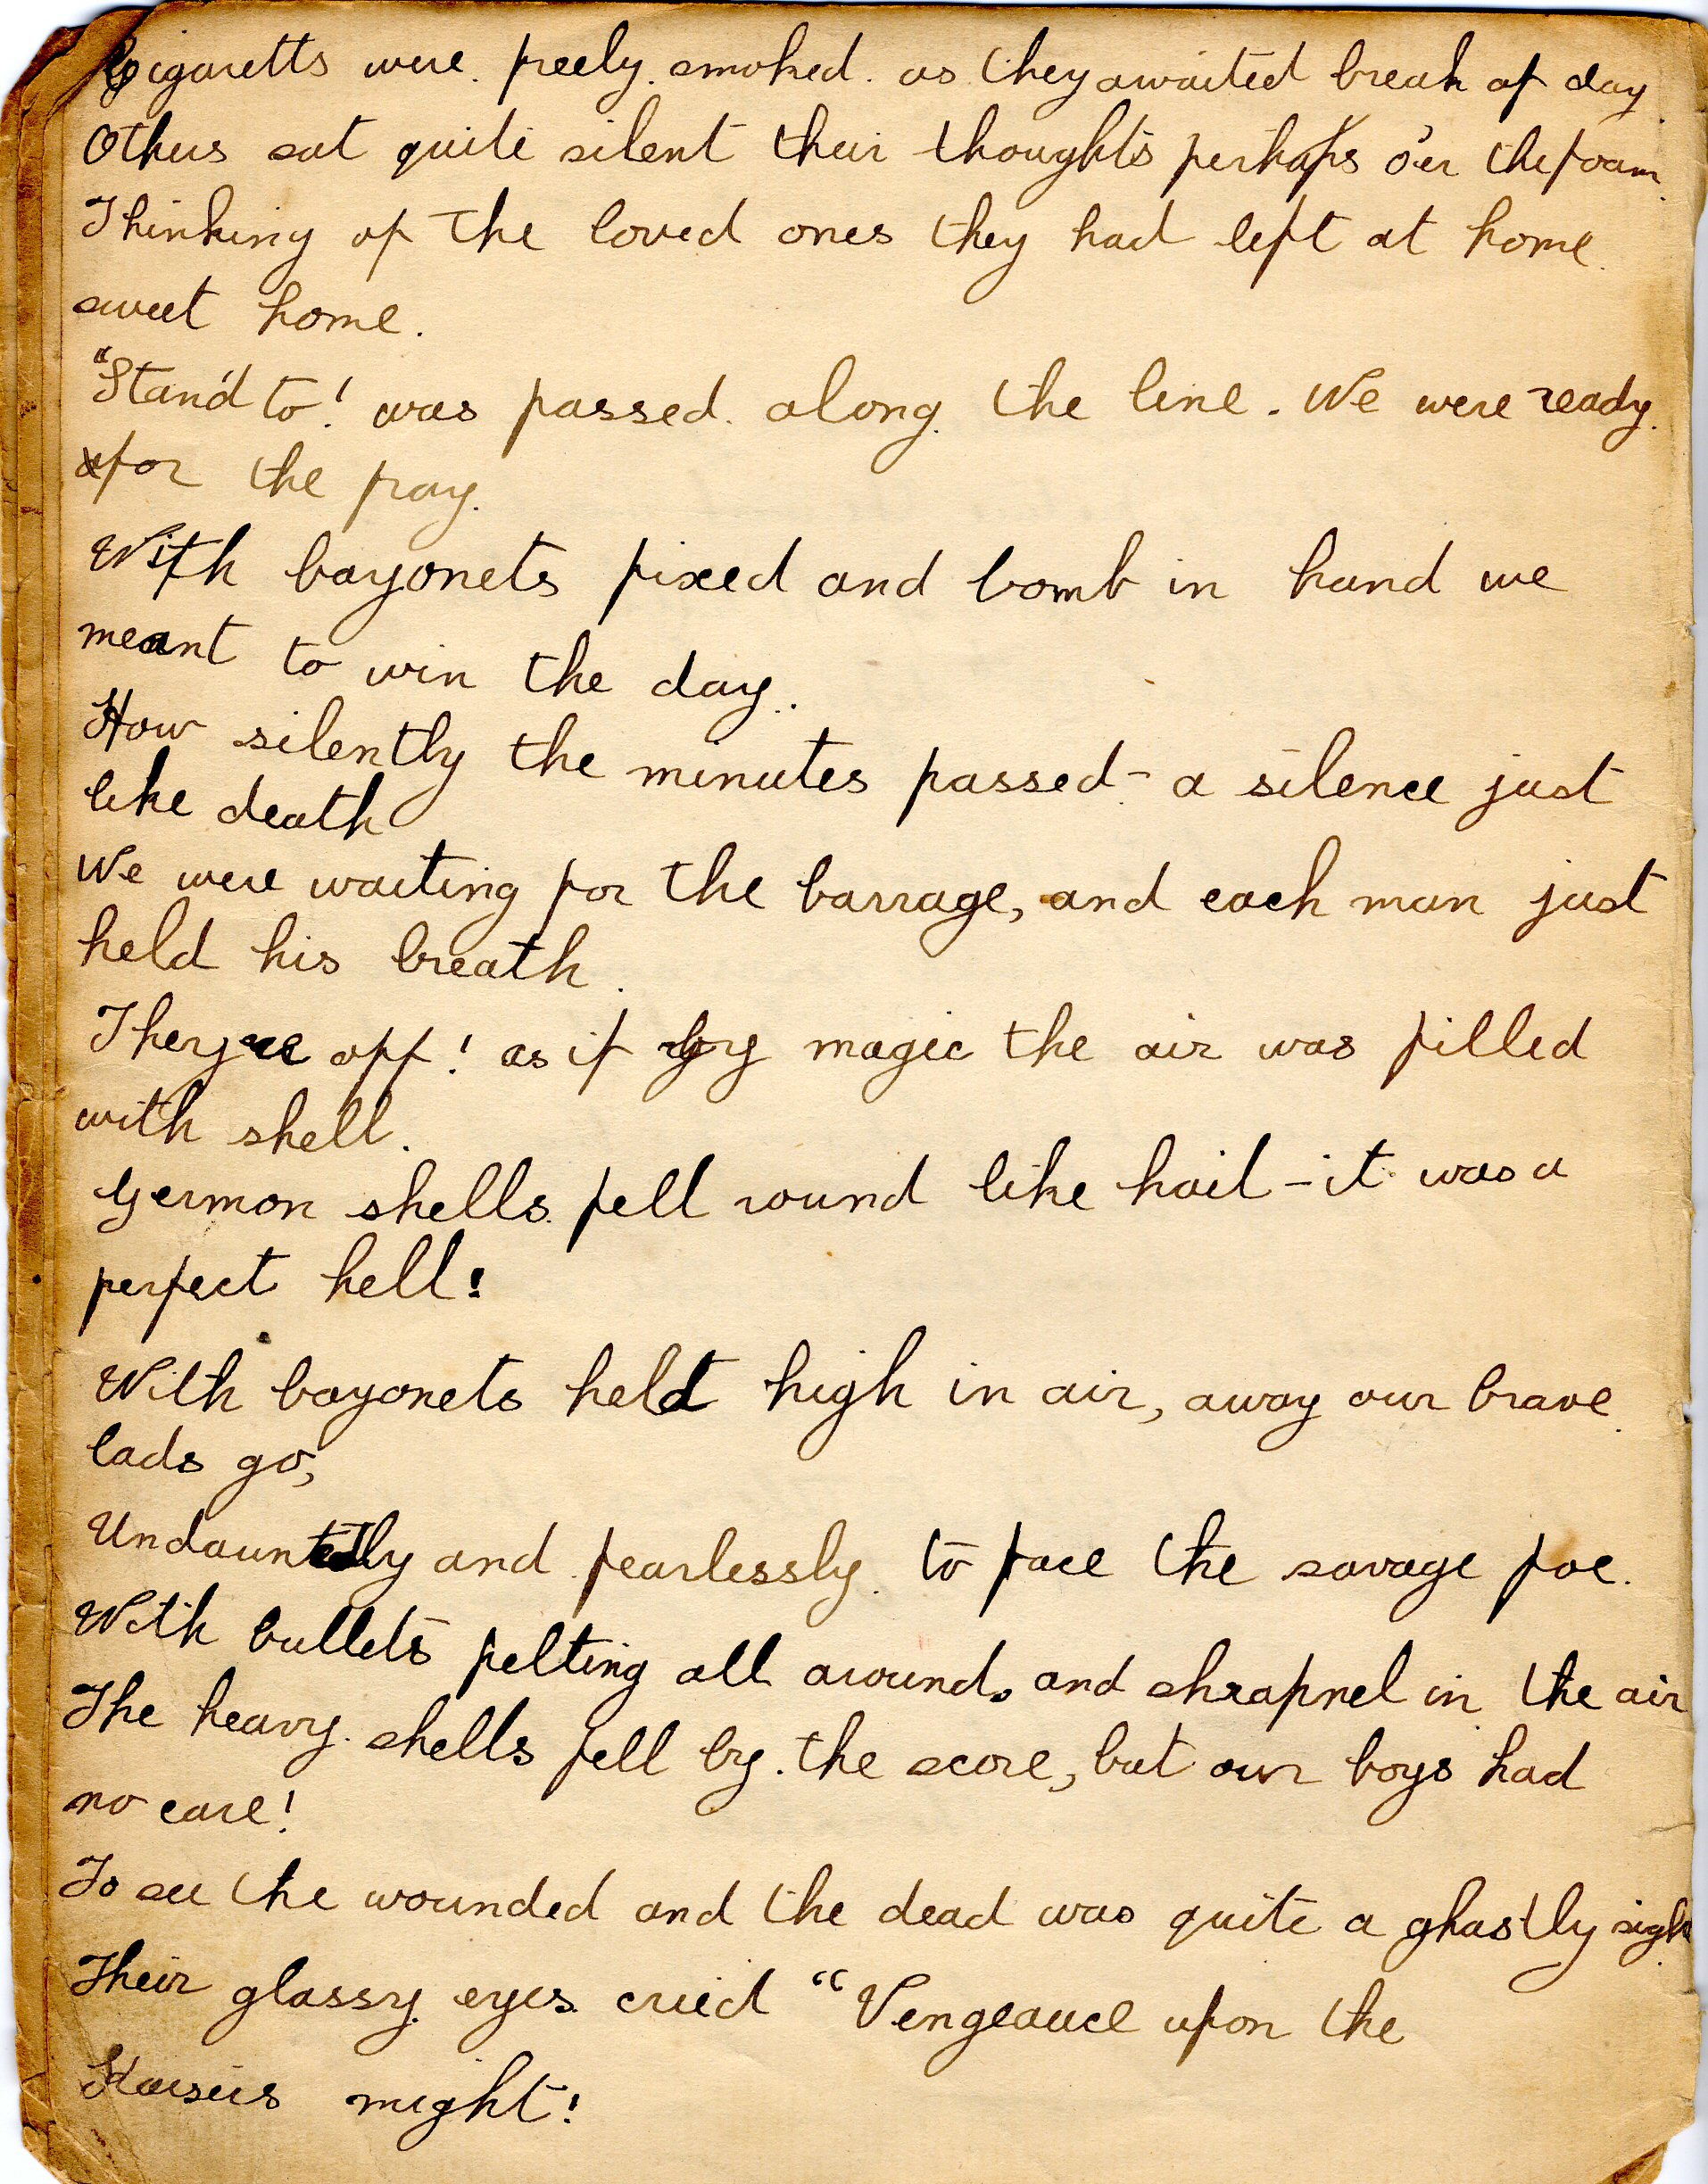 Cigaretts were. freely. smoked. as they awaited break of day.
Others sat quite silent their thoughts perhaps o'er the foam.
Thinking of the loved ones they had left at home.
sweet home.
"Stand to! was passed. along. the line. We were ready.
for the fray.
With bayonets fixed and bomb in hand we
meant to win the day..
How silently the minutes passed - a silence just
like death
We were waiting for the barrage, and each man just
held his breath.
They're off! as if by magic the air was filled
with shell.
German shells. fell round like hail - it was a
perfect hell!
With bayonets held high in air, away our brave.
lads go,
Undauntedly and fearlessly. to face the savage foe.
With bullets pelting all around, and shrapnel in the air
The heavy. shells fell by. the score, but our boys had
no care!
To see the wounded and the dead was quite a ghastly sight
Their glassy. eyes. cried "Vengeance upon the
Kaisers might!